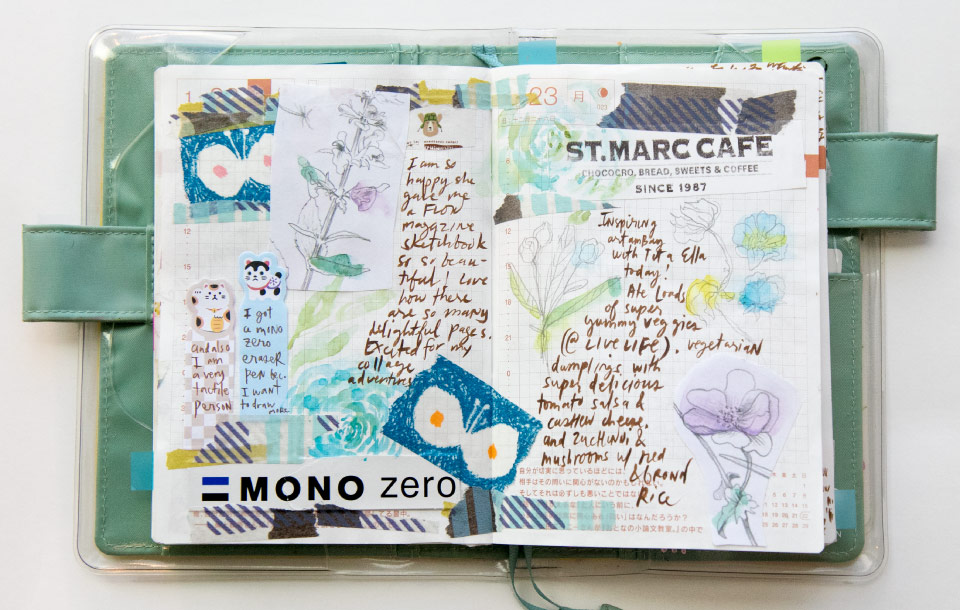 I am so
happy she
gave me
a FLOW
magazine
sketchbook
so so beau-
tiful! I love
how there
are so many
delightful pages.
Excited for my
collage
adventures
I got
a mono
zero
eraser
pen bec.
I want
to draw
more
and also
I am
a very
tactile
person
MONO zero
23 月
ST.MARC CAFE
CHOCOCRO, BREAD, SWEETS & COFFEE
SINCE 1987
Inspiring
with Tita Ella
today!
Ate loads
of super
yummy veggies
(@ LIVE LIFE). vegetarian
dumplings with
super delicious
tomato salsa &
cashew cheese.
and zucchini &
mushrooms w/ red
& brown
Rice
自分が実に思っているほどには、
相手はその問いに関心がないのかもしれない
そしてそれは必ずしも悪いことではな